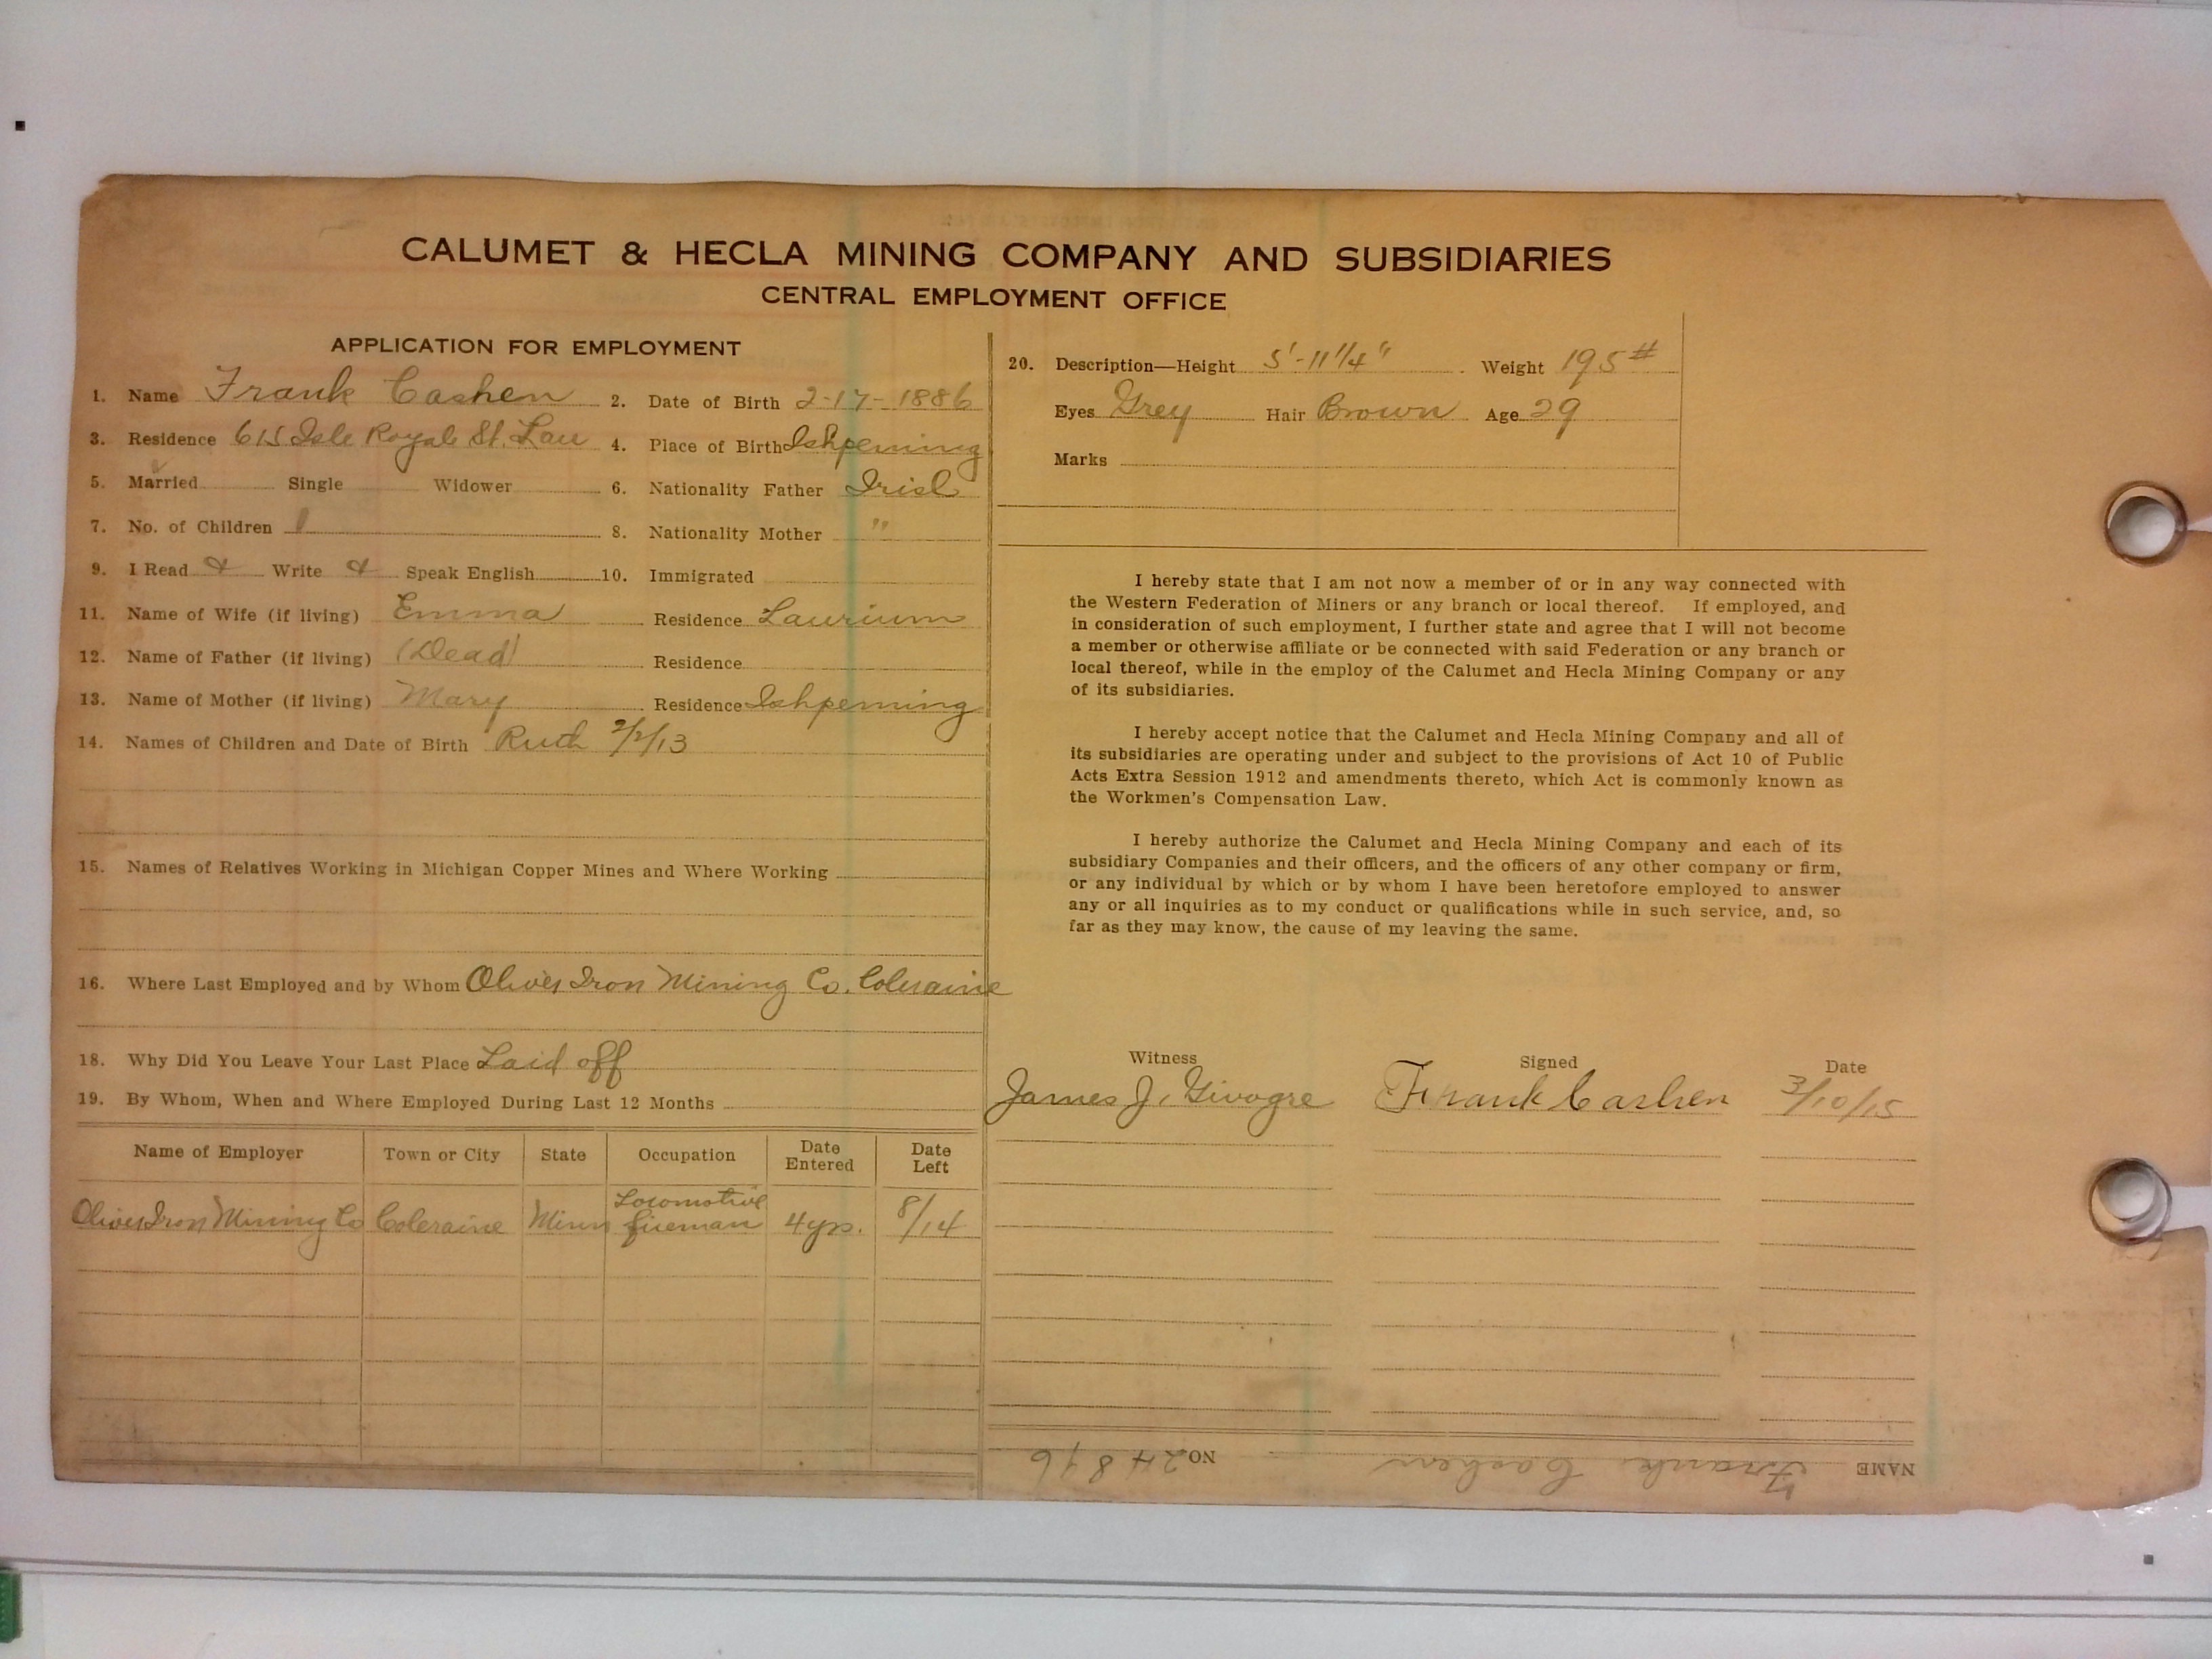 CALUMET & HECLA MINING COMPANY AND SUBSIDIARIES
CENTRAL EMPLOYMENT OFFICE
APPLICATION FOR EMPLOYMENT
1. Name Frank Cashen 2. Date of Birth 2-17-1886
3. Residence 615 Isle Royale St. Lau 4. Place of Birth Ishpeming
5. Married Single Widower 6. Nationality Father Irish
7. No. of Children 1 8. Nationality Mother "
9. I Read & Write & Speak English 10. Immigrated
11. Name of Wife (if living) Emma Residence Laurium
12. Name of Father (if living) (Dead) Residence
13. Name of Mother (if living) Mary Residence Ishpeming
14. Names of Children and Date of Birth Ruth
15. Names of Relatives Working in Michigan Copper Mines and Where Working
16. Where Last Employed and by Whom Oliver Iron Mining Co. Coleraine
18. Why Did You Leave Your Last Place Laid off
19. By Whom, When and Where Employed During Last 12 Months
Name of Employer Town or City State Occupation Date Entered Date Left
Oliver Iron Mining Co Coleraine Minn Locomotive fireman 4 yrs. 8/14
20. Description—Height 5'-11 1/4" Weight 195#
Eyes Grey Hair Brown Age 29
Marks
I hereby state that I am not now a member of or in any way connected with
the Western Federation of Miners or any branch or local thereof. If employed, and
in consideration of such employment, I further state and agree that I will not become
a member or otherwise affiliate or be connected with said Federation or any branch or
local thereof, while in the employ of the Calumet and Hecla Mining Company or any
of its subsidiaries.
I hereby accept notice that the Calumet and Hecla Mining Company and all of
its subsidiaries are operating under and subject to the provisions of Act 10 of Public
Acts Extra Session 1912 and amendments thereto, which Act is commonly known as
the Workmen's Compensation Law.
I hereby authorize the Calumet and Hecla Mining Company and each of its
subsidiary Companies and their officers, and the officers of any other company or firm,
or any individual by which or by whom I have been heretofore employed to answer
any or all inquiries as to my conduct or qualifications while in such service, and, so
far as they may know, the cause of my leaving the same.
Witness Signed Date
James J. Frank Cashen 3/10/15
NAME Frank Cashen NO. 24816